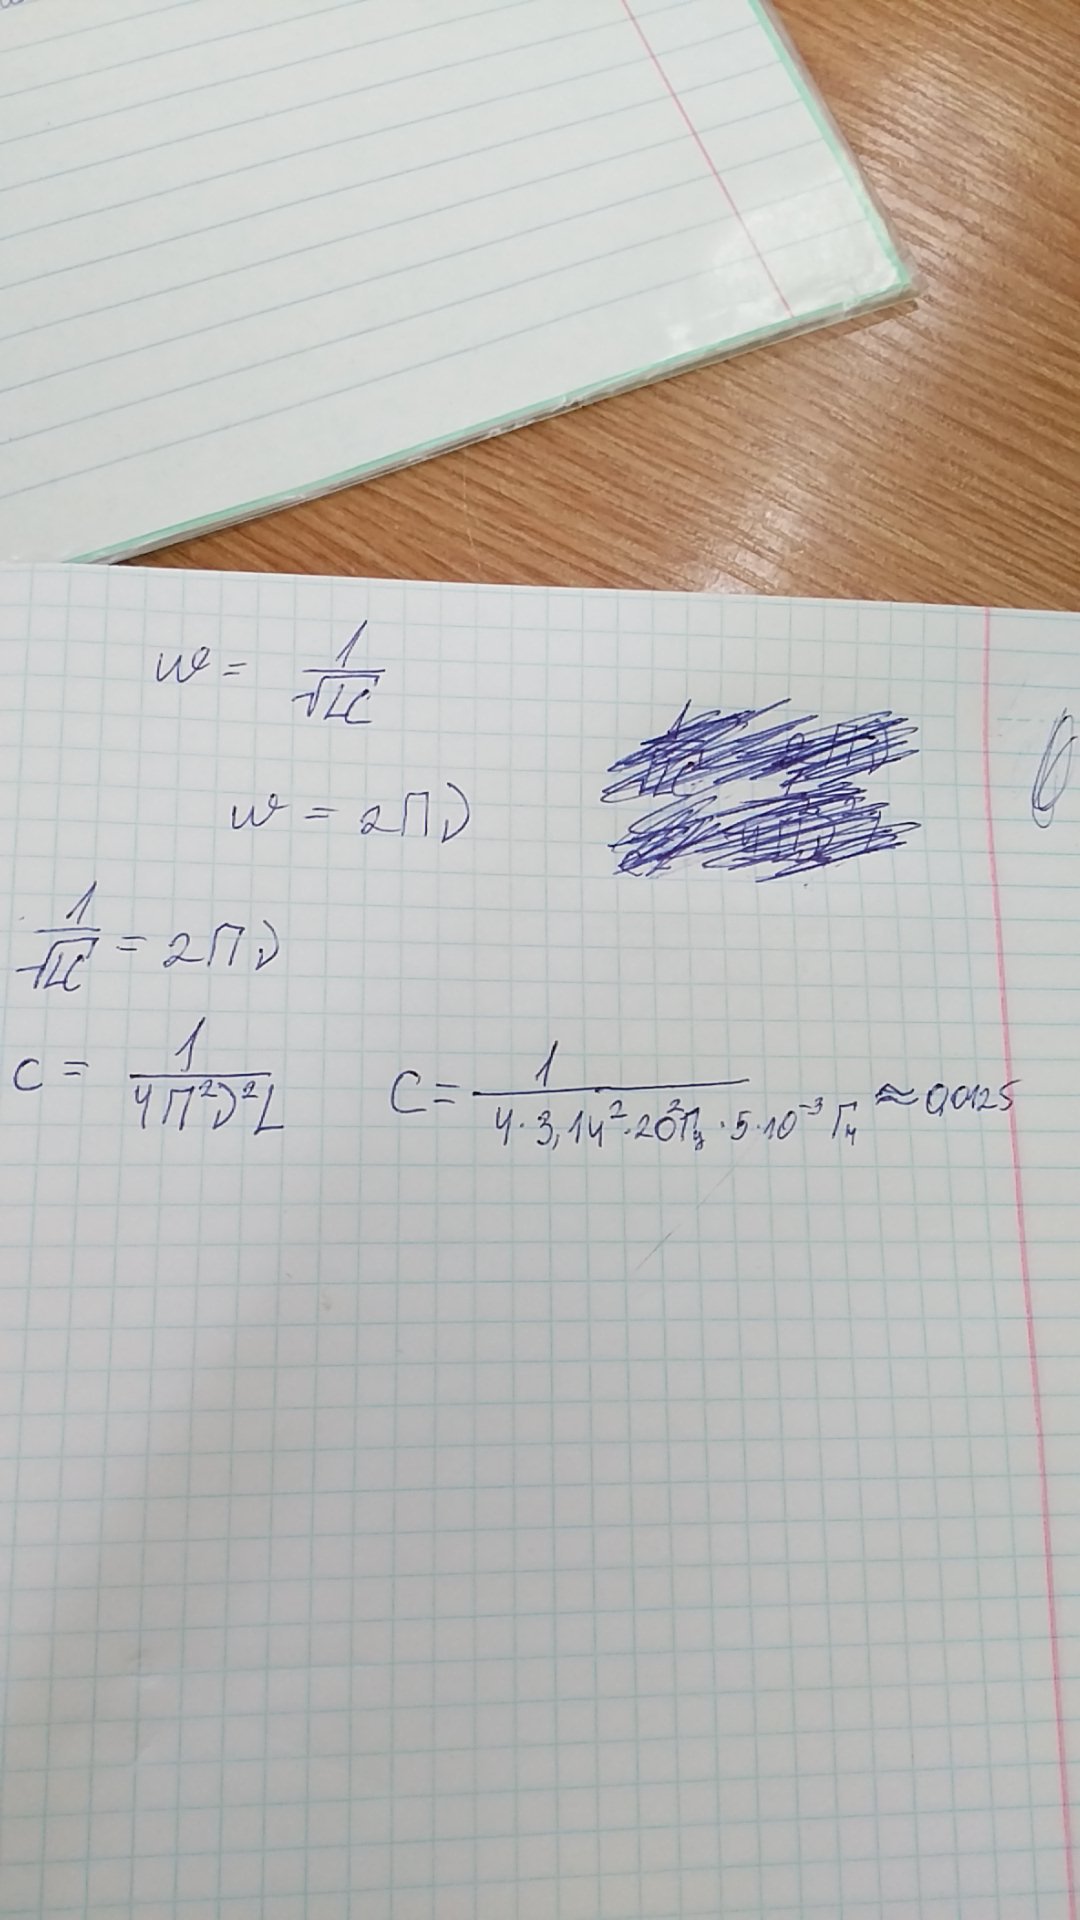 w = 1/√LC
w = 2Пν
1/√LC = 2Пν
c = 1/4П²ν²L
C = 1/4·3,14²·20²Гц·5·10⁻³Гн ≈ 0,0125